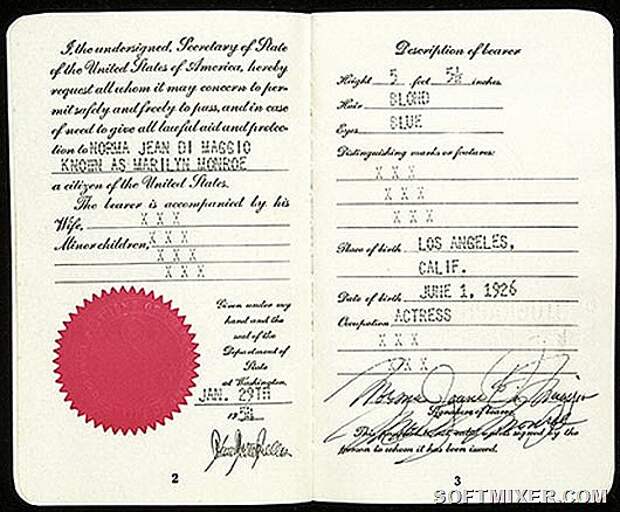 I, the undersigned, Secretary of State
of the United States of America, hereby
request all whom it may concern to per-
mit safely and freely to pass, and in case
of need to give all lawful aid and protec-
tion to NORMA JEAN DI MAGGIO
KNOWN AS MARILYN MONROE
a citizen of the United States.
The bearer is accompanied by his
Wife, X X X
Minor children, X X X
X X X
X X X
Given under my
hand and the
seal of the
Department of
State
at Washington,
JAN. 29TH
19
2
Description of bearer
Height 5 feet 5½ inches
Hair BLOND
Eyes BLUE
Distinguishing marks or features:
X X X
X X X
X X X
Place of birth LOS ANGELES,
CALIF.
Date of birth JUNE 1, 1926
Occupation ACTRESS
X X X
X X X
Norma Jeane Di Maggio
Signature of bearer
Monroe
This signed by the
person to whom it has been issued.
3
SOFTMIXER.COM